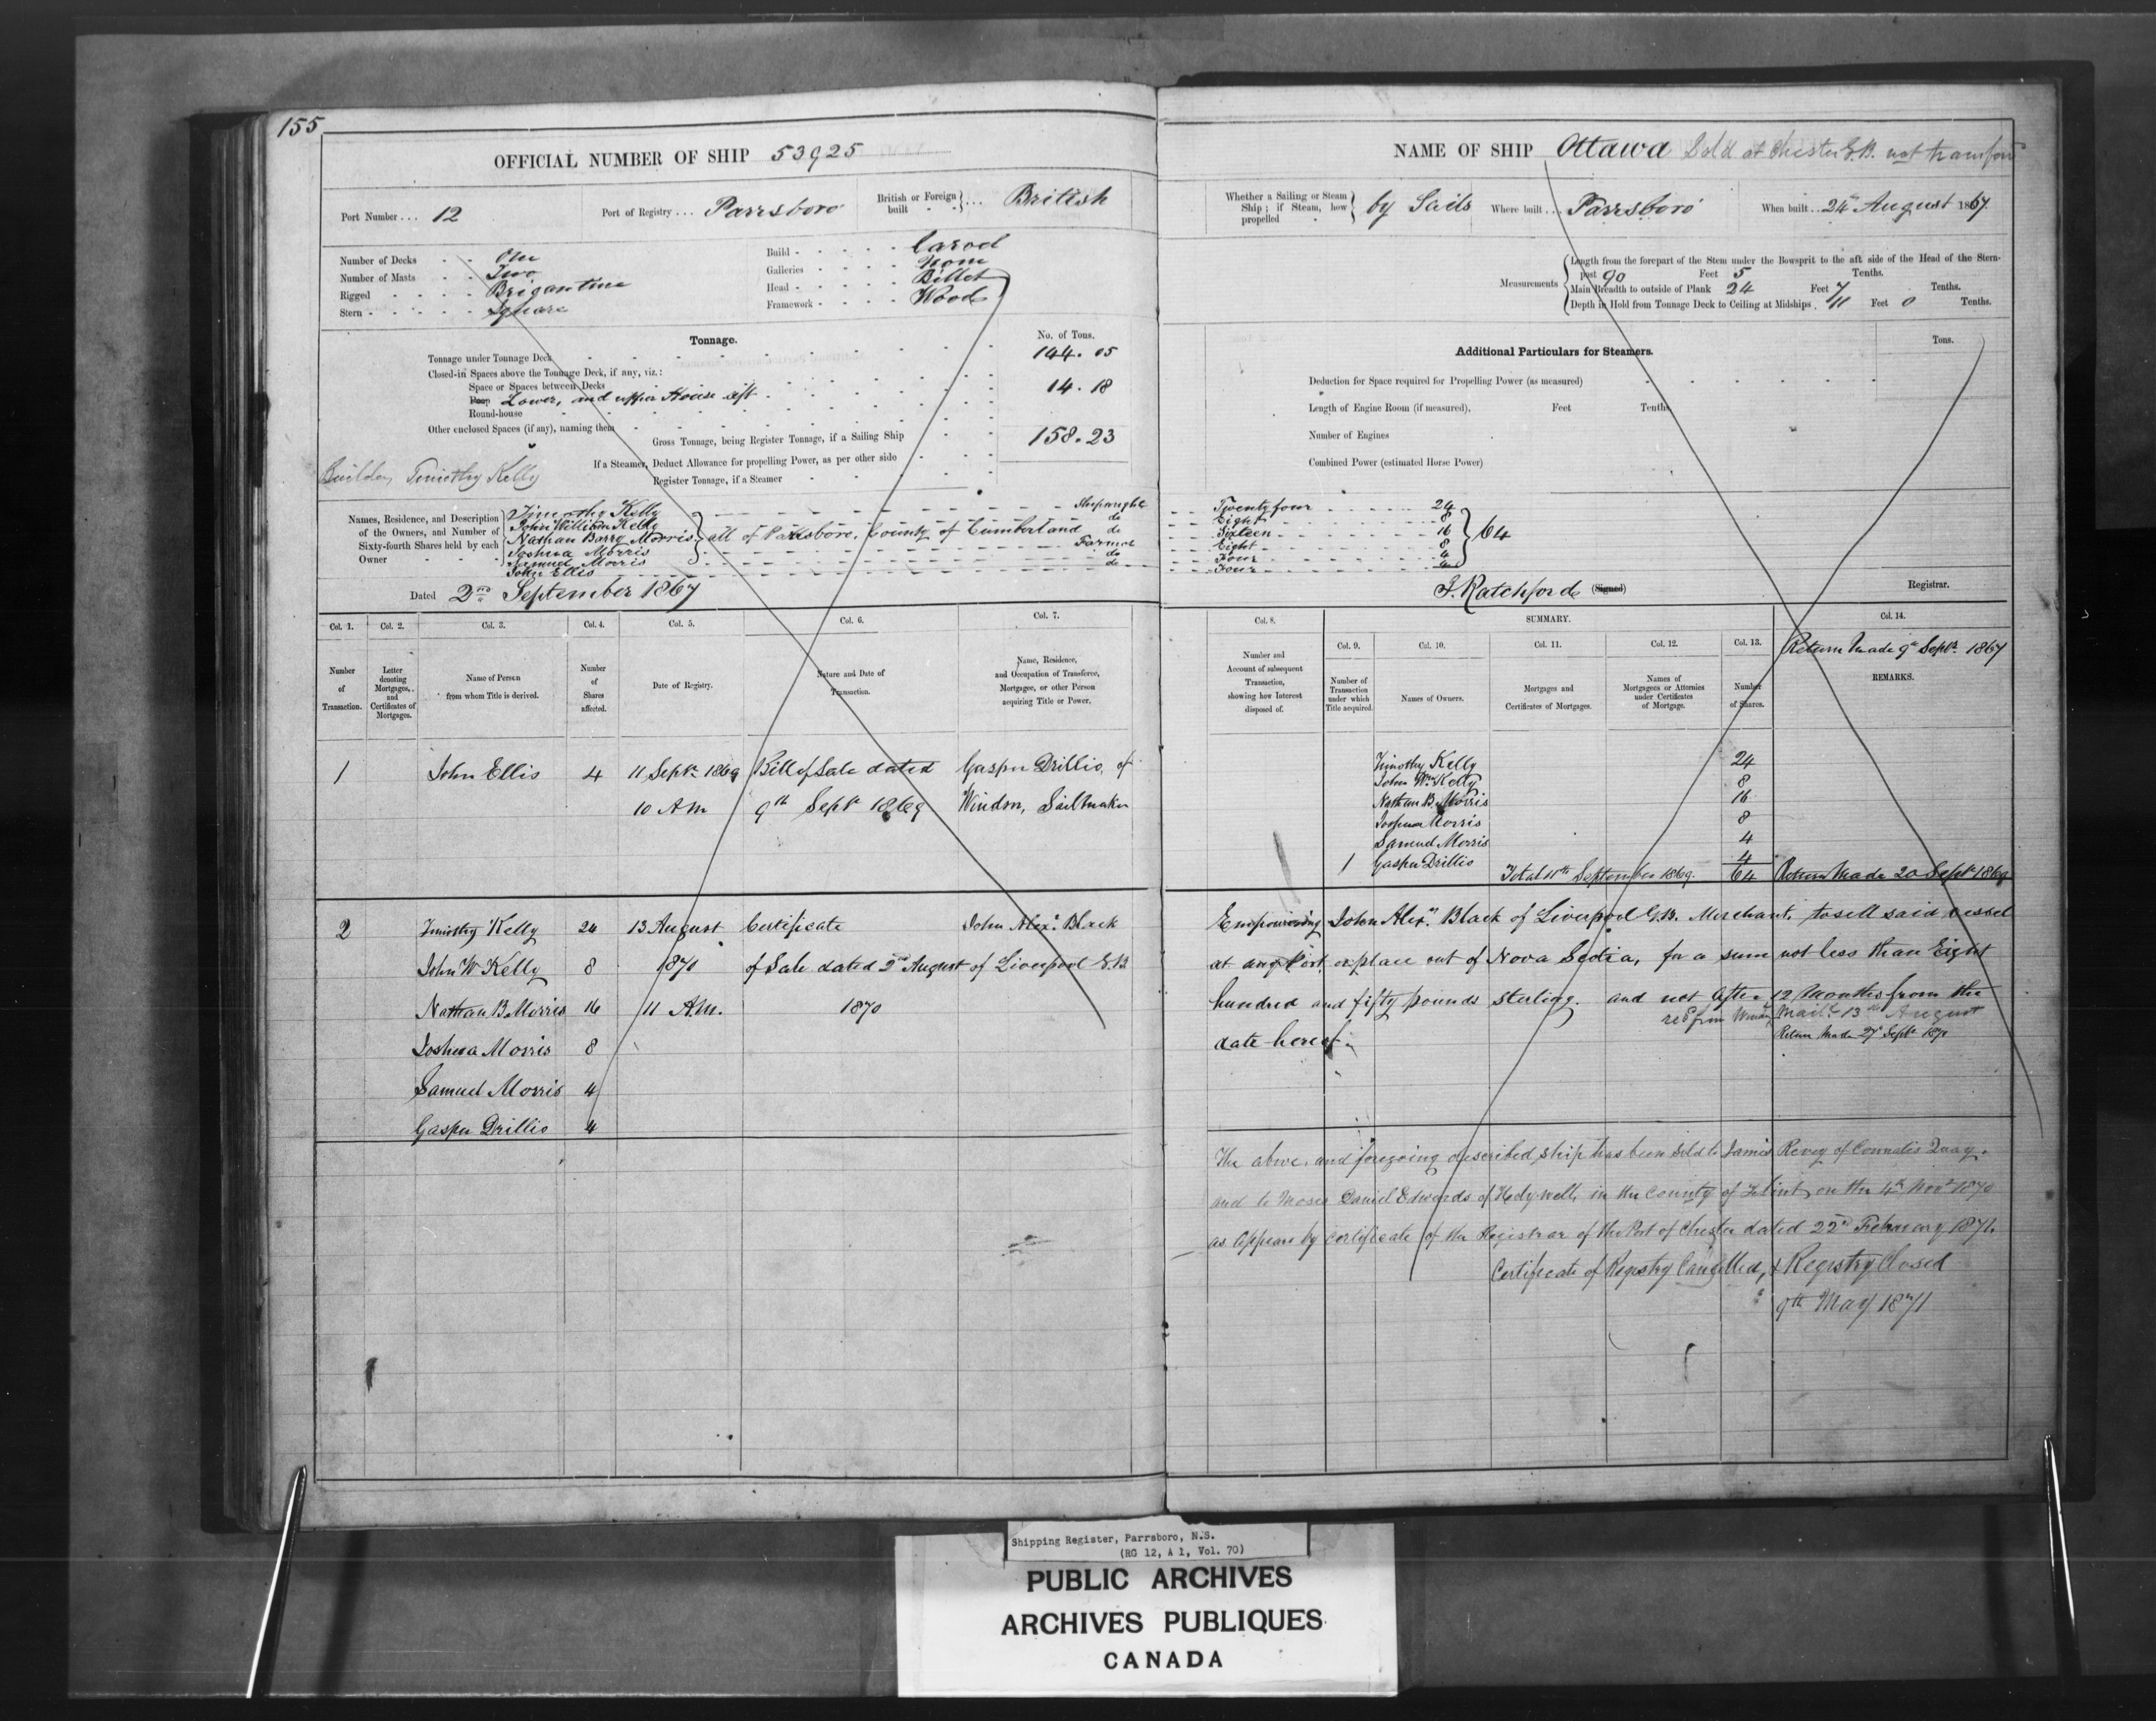 155
OFFICIAL NUMBER OF SHIP 53925
Port Number ... 12
Port of Registry ... Parrsboro
British or Foreign built } ... British
Number of Decks - - One
Number of Masts - - Two
Rigged - - - - Brigantine
Stern - - - - - Square
Build - - - - - Carvel
Galleries - - - - None
Head - - - - - Billet
Framework - - - - Wood
Tonnage.
No. of Tons.
Tonnage under Tonnage Deck 144.05
Closed-in Spaces above the Tonnage Deck, if any, viz.:
Space or Spaces between Decks
Poop Lower, and upper House aft 14.18
Round-house
Other enclosed Spaces (if any), naming them
Gross Tonnage, being Register Tonnage, if a Sailing Ship 158.23
If a Steamer, Deduct Allowance for propelling Power, as per other side
Register Tonnage, if a Steamer
Builder, Timothy Kelly
Names, Residence, and Description of the Owners, and Number of Sixty-fourth Shares held by each Owner
Timothy Kelly Shipwright
John William Kelly do
Nathan Barry Morris } all of Parrsboro, County of Cumberland do
Joshua Morris Farmer
Samuel Morris do
John Ellis do
Dated 2nd September 1867
Col. 1. Col. 2. Col. 3. Col. 4. Col. 5. Col. 6. Col. 7.
Number of Transaction.
Letter denoting Mortgages, and Certificates of Mortgages.
Name of Person from whom Title is derived.
Number of Shares affected.
Date of Registry.
Nature and Date of Transaction.
Name, Residence, and Occupation of Transferee, Mortgagee, or other Person acquiring Title or Power.
1 John Ellis 4 11 Septr 1869 Bill of Sale dated Gasper Drillio, of
10 A M 9th Septr 1869 Windsor, Sailmaker
2 Timothy Kelly 24 13 August Certificate John Alexr Black
John W Kelly 8 1870 of Sale dated 2nd August of Liverpool G.B.
Nathan B Morris 16 11 A.M. 1870
Joshua Morris 8
Samuel Morris 4
Gasper Drillio 4
NAME OF SHIP Ottawa Sold at Chester G.B. not
Whether a Sailing or Steam Ship; if Steam, how propelled } by Sails
Where built ... Parrsboro
When built .. 24th August 1867.
Measurements
Length from the forepart of the Stem under the Bowsprit to the aft side of the Head of the Stern-
post 90 Feet 5 Tenths.
Main Breadth to outside of Plank 24 Feet 7 Tenths.
Depth in Hold from Tonnage Deck to Ceiling at Midships . 11 Feet 0 Tenths.
Additional Particulars for Steamers.
Tons.
Deduction for Space required for Propelling Power (as measured)
Length of Engine Room (if measured), Feet Tenths
Number of Engines
Combined Power (estimated Horse Power)
Twenty four 24
Eight 8
Sixteen 16 } 64
Eight 8
Four 4
Four 4
J. Ratchford (Signed) Registrar.
Col. 8. SUMMARY. Col. 14.
Col. 9. Col. 10. Col. 11. Col. 12. Col. 13.
Return Made 9th Septr 1867
Number and Account of subsequent Transaction, showing how Interest disposed of.
Number of Transaction under which Title acquired.
Names of Owners.
Mortgages and Certificates of Mortgages.
Names of Mortgagees or Attornies under Certificates of Mortgage.
Number of Shares.
REMARKS.
Timothy Kelly 24
John Wm Kelly 8
Nathan B. Morris 16
Joshua Morris 8
Samuel Morris 4
1 Gasper Drillio 4
Total 11th September 1869. 64 Return Made 20 Septr 1869
Empowering John Alexr Black of Liverpool G.B. Merchant, to sell said vessel
at any Port, or place out of Nova Scotia, for a sum not less than Eight
hundred and fifty pounds sterling. and not after 12 Months from the
13th August
date hereof.
Return Made 27 Septr 1870
The above and foregoing described ship has been sold to James Revey of Connales Quay.
and to Moses Daniel Edwards of Holywell, in the County of Flint, on the 4th Novr 1870
as appears by Certificate of the Registrar of the Port of Chester dated 22nd February 1871.
Certificate of Registry Cancelled, & Registry Closed
9th May 1871
Shipping Register, Parrsboro, N.S.
(RG 12, A 1, Vol. 70)
PUBLIC ARCHIVES
ARCHIVES PUBLIQUES
CANADA